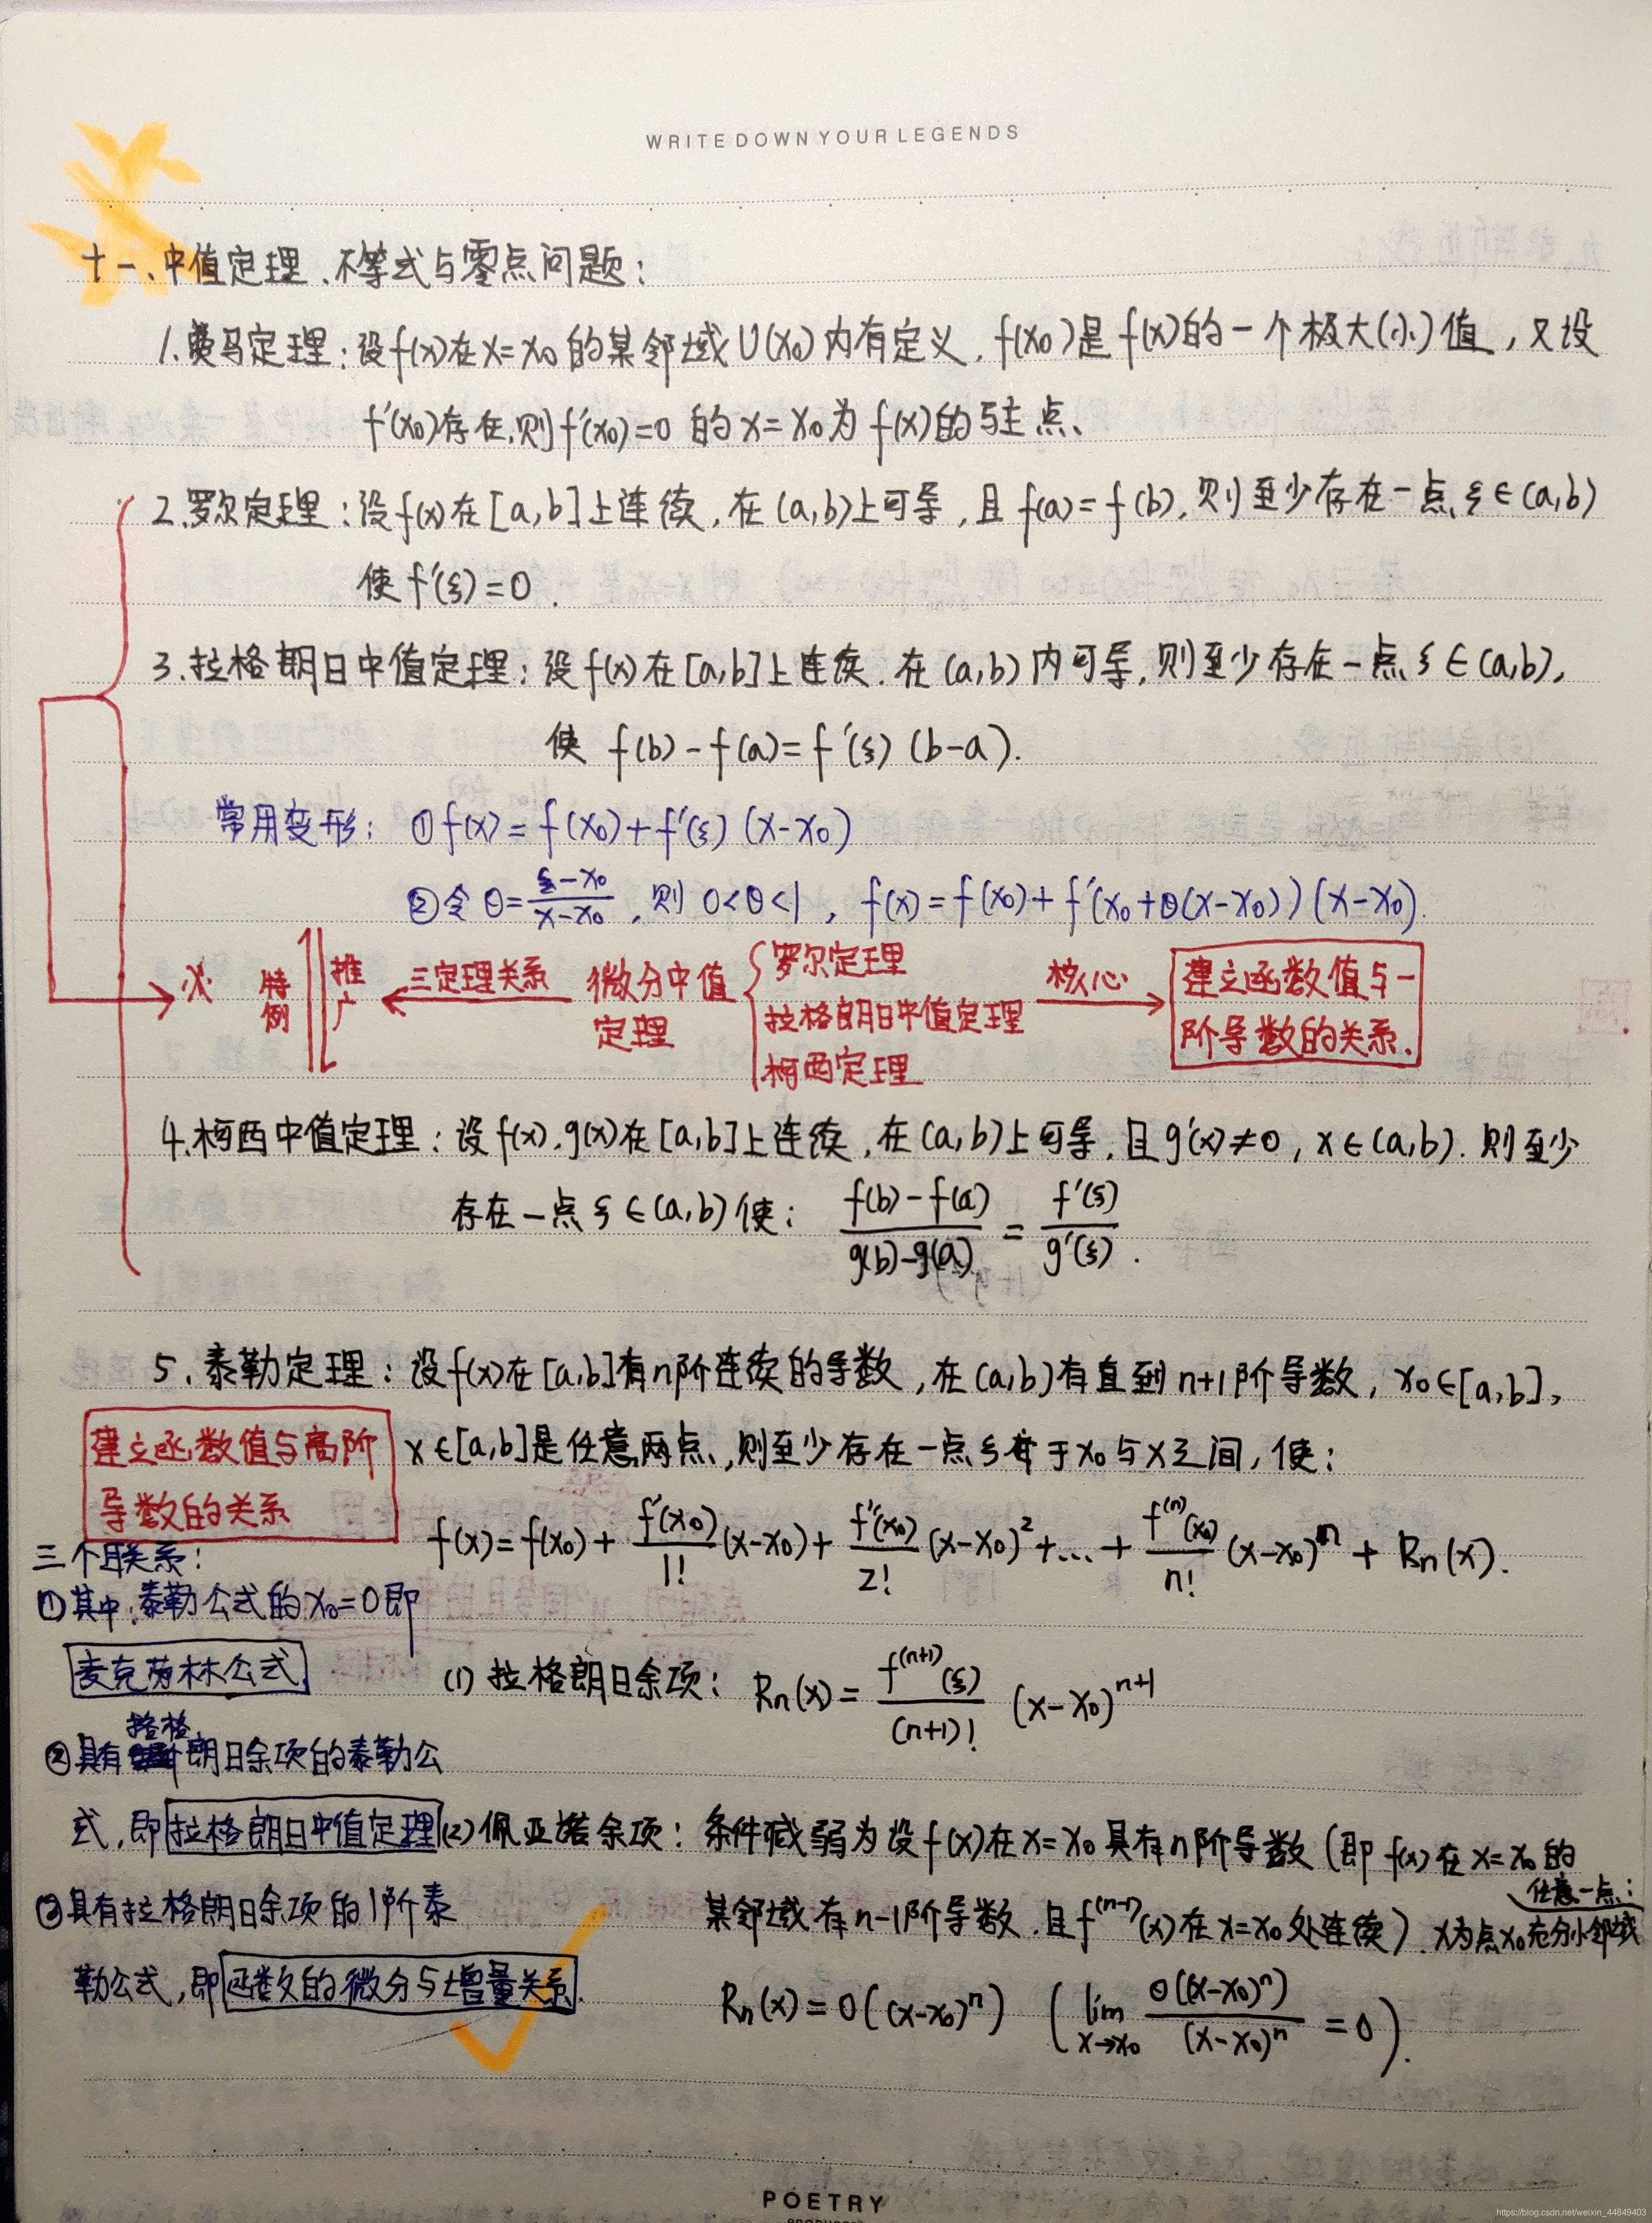 WRITE DOWN YOUR LEGENDS
十一、中值定理、不等式与零点问题：
1.费马定理：设f(x)在x=x₀的某邻域U(x₀)内有定义，f(x₀)是f(x)的一个极大(小)值，又设
f'(x₀)存在，则f'(x₀)=0 的x=x₀为f(x)的驻点、
2.罗尔定理：设f(x)在[a,b]上连续，在(a,b)上可导，且f(a)=f(b)，则至少存在一点ξ∈(a,b)
使f'(ξ)=0.
3.拉格朗日中值定理：设f(x)在[a,b]上连续.在(a,b)内可导，则至少存在一点ξ∈(a,b),
使 f(b)-f(a)=f'(ξ)(b-a).
常用变形： ①f(x)=f(x₀)+f'(ξ)(x-x₀)
②令θ=(ξ-x₀)/(x-x₀)，则0<θ<1，f(x)=f(x₀)+f'(x₀+θ(x-x₀))(x-x₀).
特例
推广
三定理关系
微分中值定理
罗尔定理
拉格朗日中值定理
柯西定理
核心
建立函数值与一
阶导数的关系.
4.柯西中值定理：设f(x).g(x)在[a,b]上连续，在(a,b)上可导，且g'(x)≠0，x∈(a,b).则至少
存在一点ξ∈(a,b)使： (f(b)-f(a))/(g(b)-g(a)) = f'(ξ)/g'(ξ).
5.泰勒定理：设f(x)在[a,b]有n阶连续的导数，在(a,b)有直到n+1阶导数，x₀∈[a,b],
x∈[a,b]是任意两点，则至少存在一点ξ于x₀与x之间，使：
建立函数值与高阶
导数的关系
f(x)=f(x₀)+f'(x₀)/1!(x-x₀)+f''(x₀)/2!(x-x₀)²+...+f⁽ⁿ⁾(x₀)/n!(x-x₀)ⁿ+Rn(x).
三个联关系：
①其中：泰勒公式的x₀=0即
麦克劳林公式.
(1)拉格朗日余项： Rn(x)=f⁽ⁿ⁺¹⁾(ξ)/(n+1)! (x-x₀)ⁿ⁺¹
②具有拉格朗日余项的泰勒公
式，即拉格朗日中值定理
(2)佩亚诺余项：条件减弱为设f(x)在x=x₀具有n阶导数(即f(x)在x=x₀的
某邻域有n-1阶导数.且f⁽ⁿ⁻¹⁾(x)在x=x₀处连续).x为点x₀充分小邻域
任意一点：
③具有拉格朗日余项的1阶泰
勒公式，即函数的微分与增量关系.
Rn(x)=o((x-x₀)ⁿ) (lim x→x₀ o((x-x₀)ⁿ)/(x-x₀)ⁿ =0).
POETRY
https://blog.csdn.net/weixin_44849403